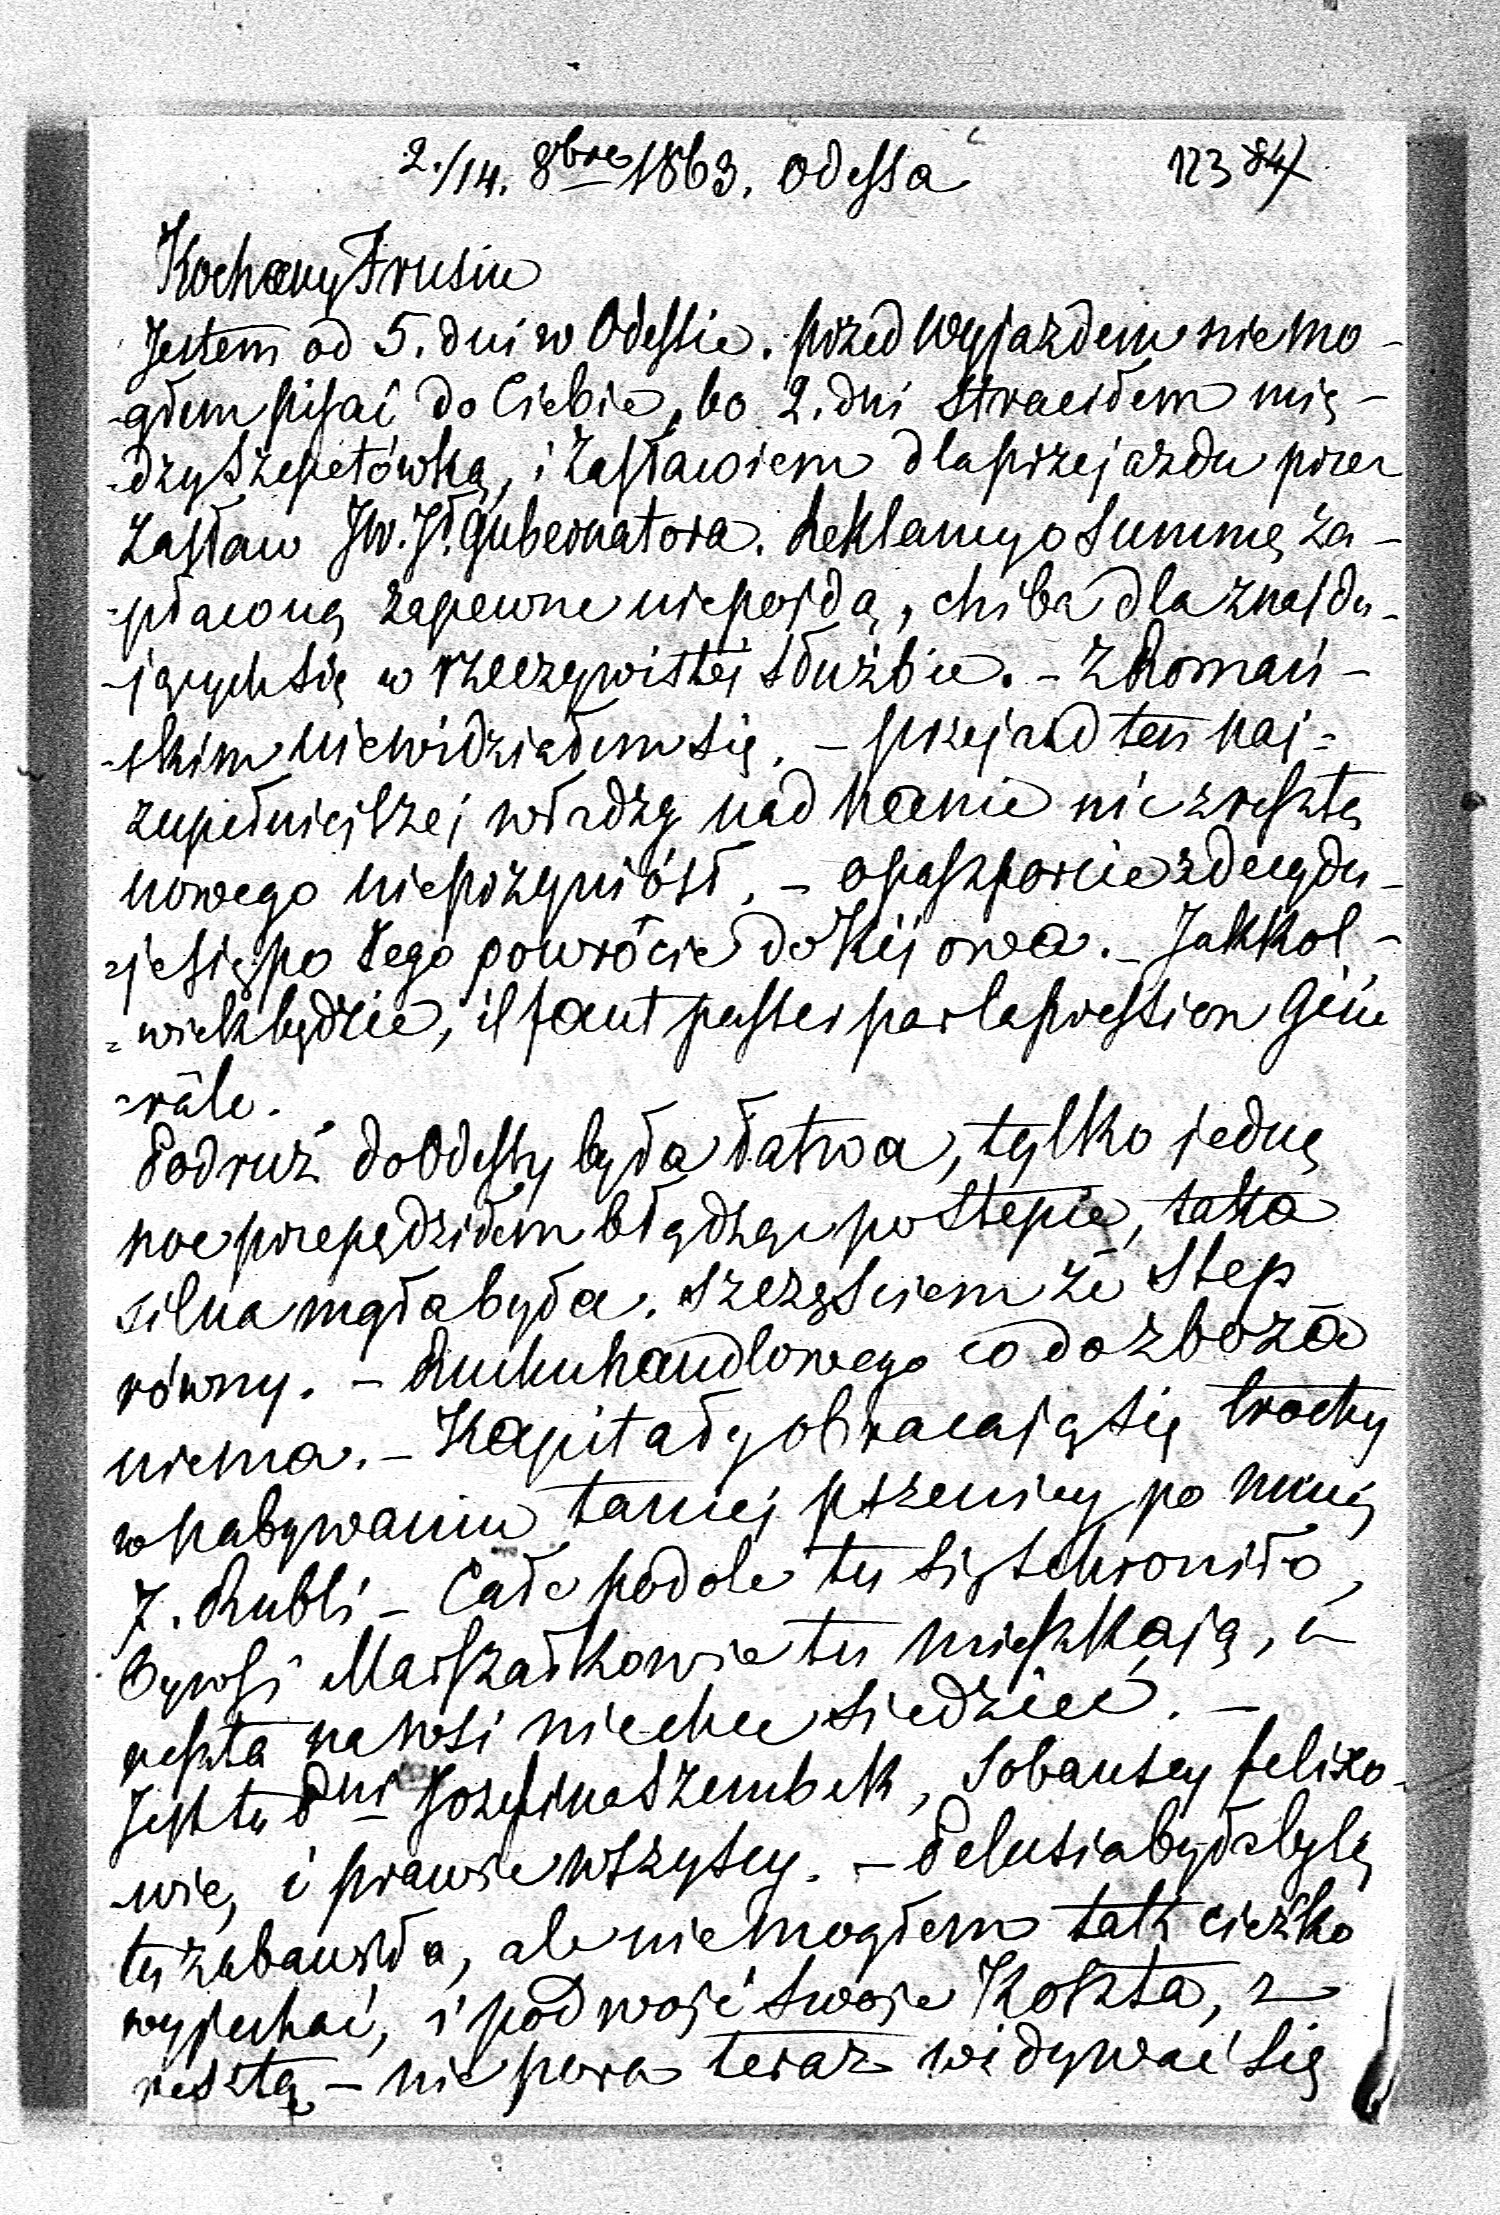 2./14. 8bre 1863. Odessa 123 84
Kochany Frusiu
Jestem od 5. dni w Odessie. przed wyjazdem nie mo-
-głem pisać do Ciebie, bo 2. dni straciłem mię-
-dzy Szepetówką, i Zasławiem dla przejazdu przez
Zasław JW. Jł. Gubernatora. Reklamy o Summę za-
-płaconą zapewne nie pojdą, chiba dla znajdu-
-jących się w rzeczywistej służbie. - Z Romań-
-skim nie widziałem się. - przejazd ten naj=
zupełniejszej władzy nad nami nic zresztą
nowego nie przyniósł. - o paszporcie zdecydu-
=je się po Jego powrócie do Kijowa. - Jakkol-
=wiek będzie, il faut passer par la pression Géné
-râle.
Podruż do Odessy była łatwa, tylko jedną
noc przepędziłem błądząc po Stepie, taka
silna mgła była. Szczęściem że Step
równy. - Ruchu handlowego co do zboża
niema. - Kapitały obracają się trochy
w nabywaniu taniej pszenicy po niżej
7. Rubli - Całe podole tu się schroniło,
Bywsi Marszałkowie tu mieszkają, i
reszta na wsi niechce siedzieć. -
Jest tu Pni Jozefina Szembek, Sobanscy felixo-
-wie, i prawie wszyscy. - Pelusia byłaby się
tu zabawiła, ale nie mogłem tak ciężko
wyjechać, i podwoić swoje Koszta, z
resztą - nie pora teraz widywać się